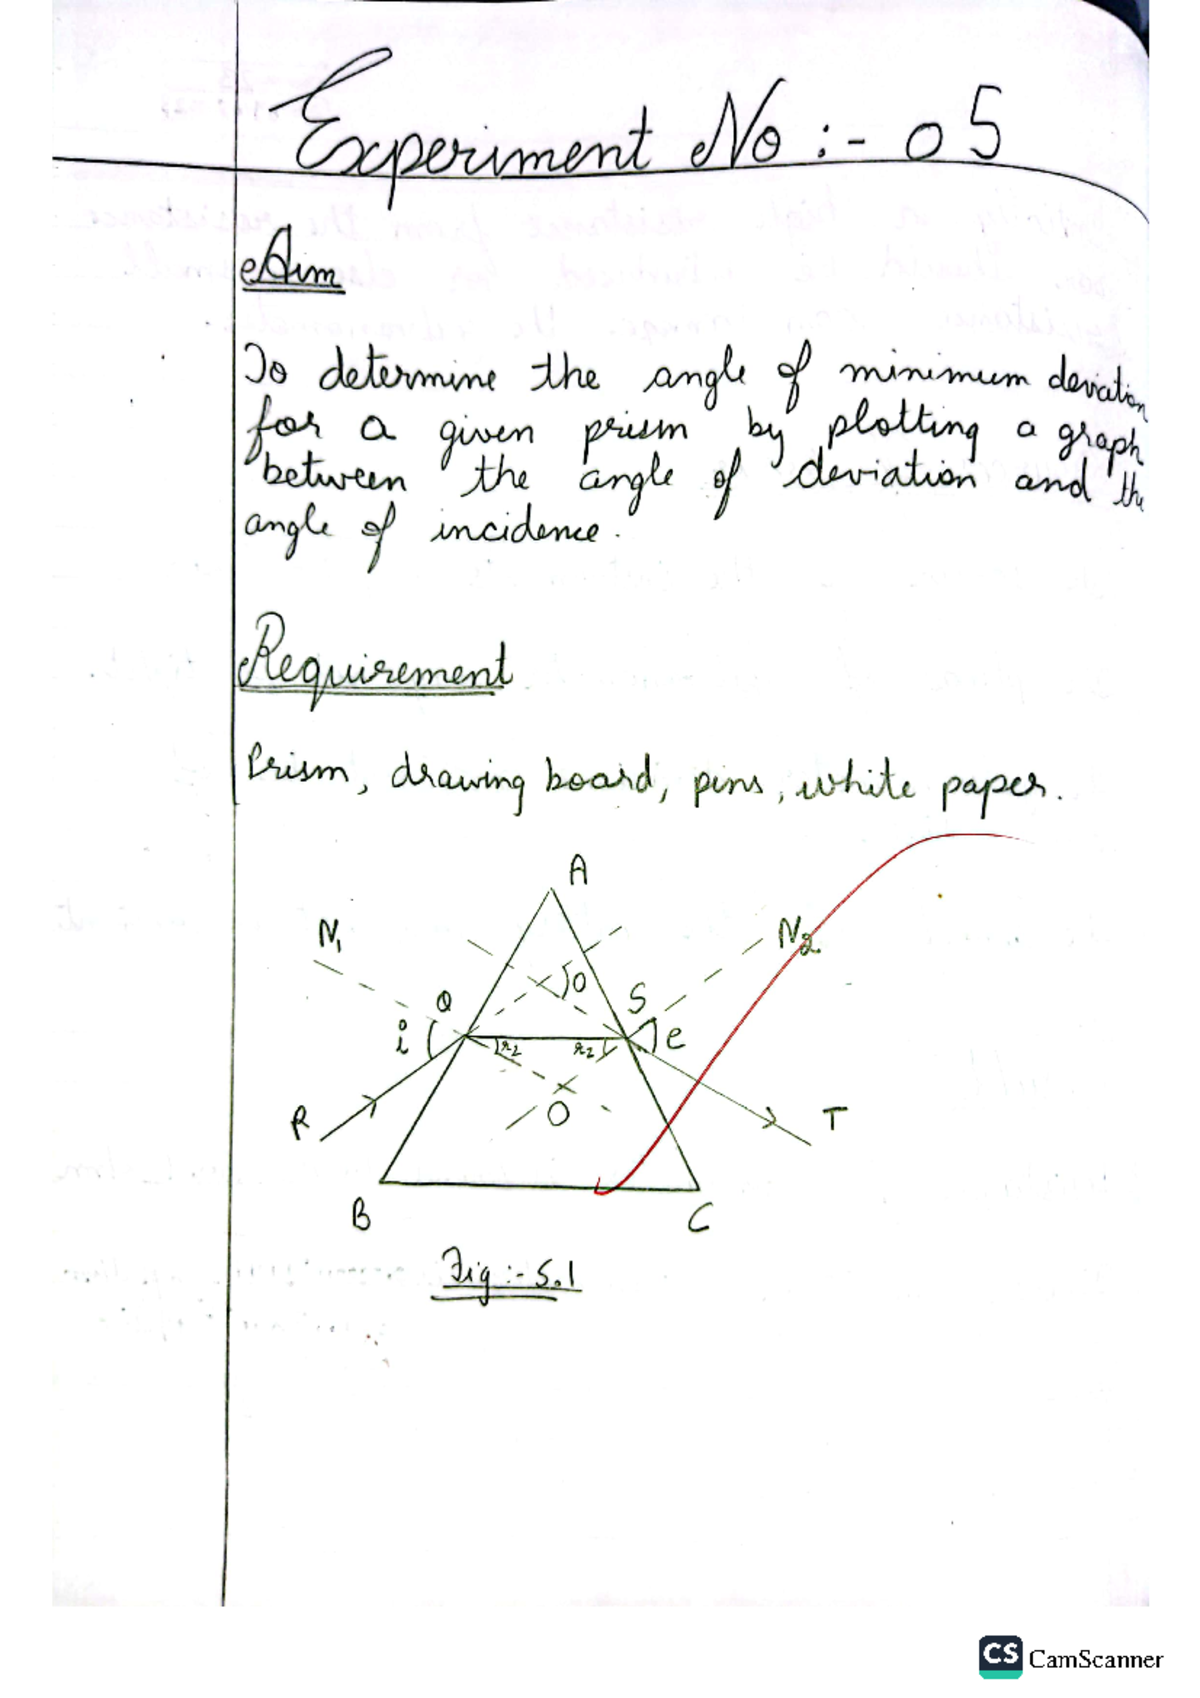 Experiment No :- 05
Aim
To determine the angle of minimum deviation
for a given prism by plotting a graph
between the angle of deviation and the
angle of incidence.
Requirement
Prism, drawing board, pins, white paper.
A
N₁
N₂
Q
D
S
i
r₂
r₂
e
O
P
T
B
C
Fig :- 5.1
CS CamScanner